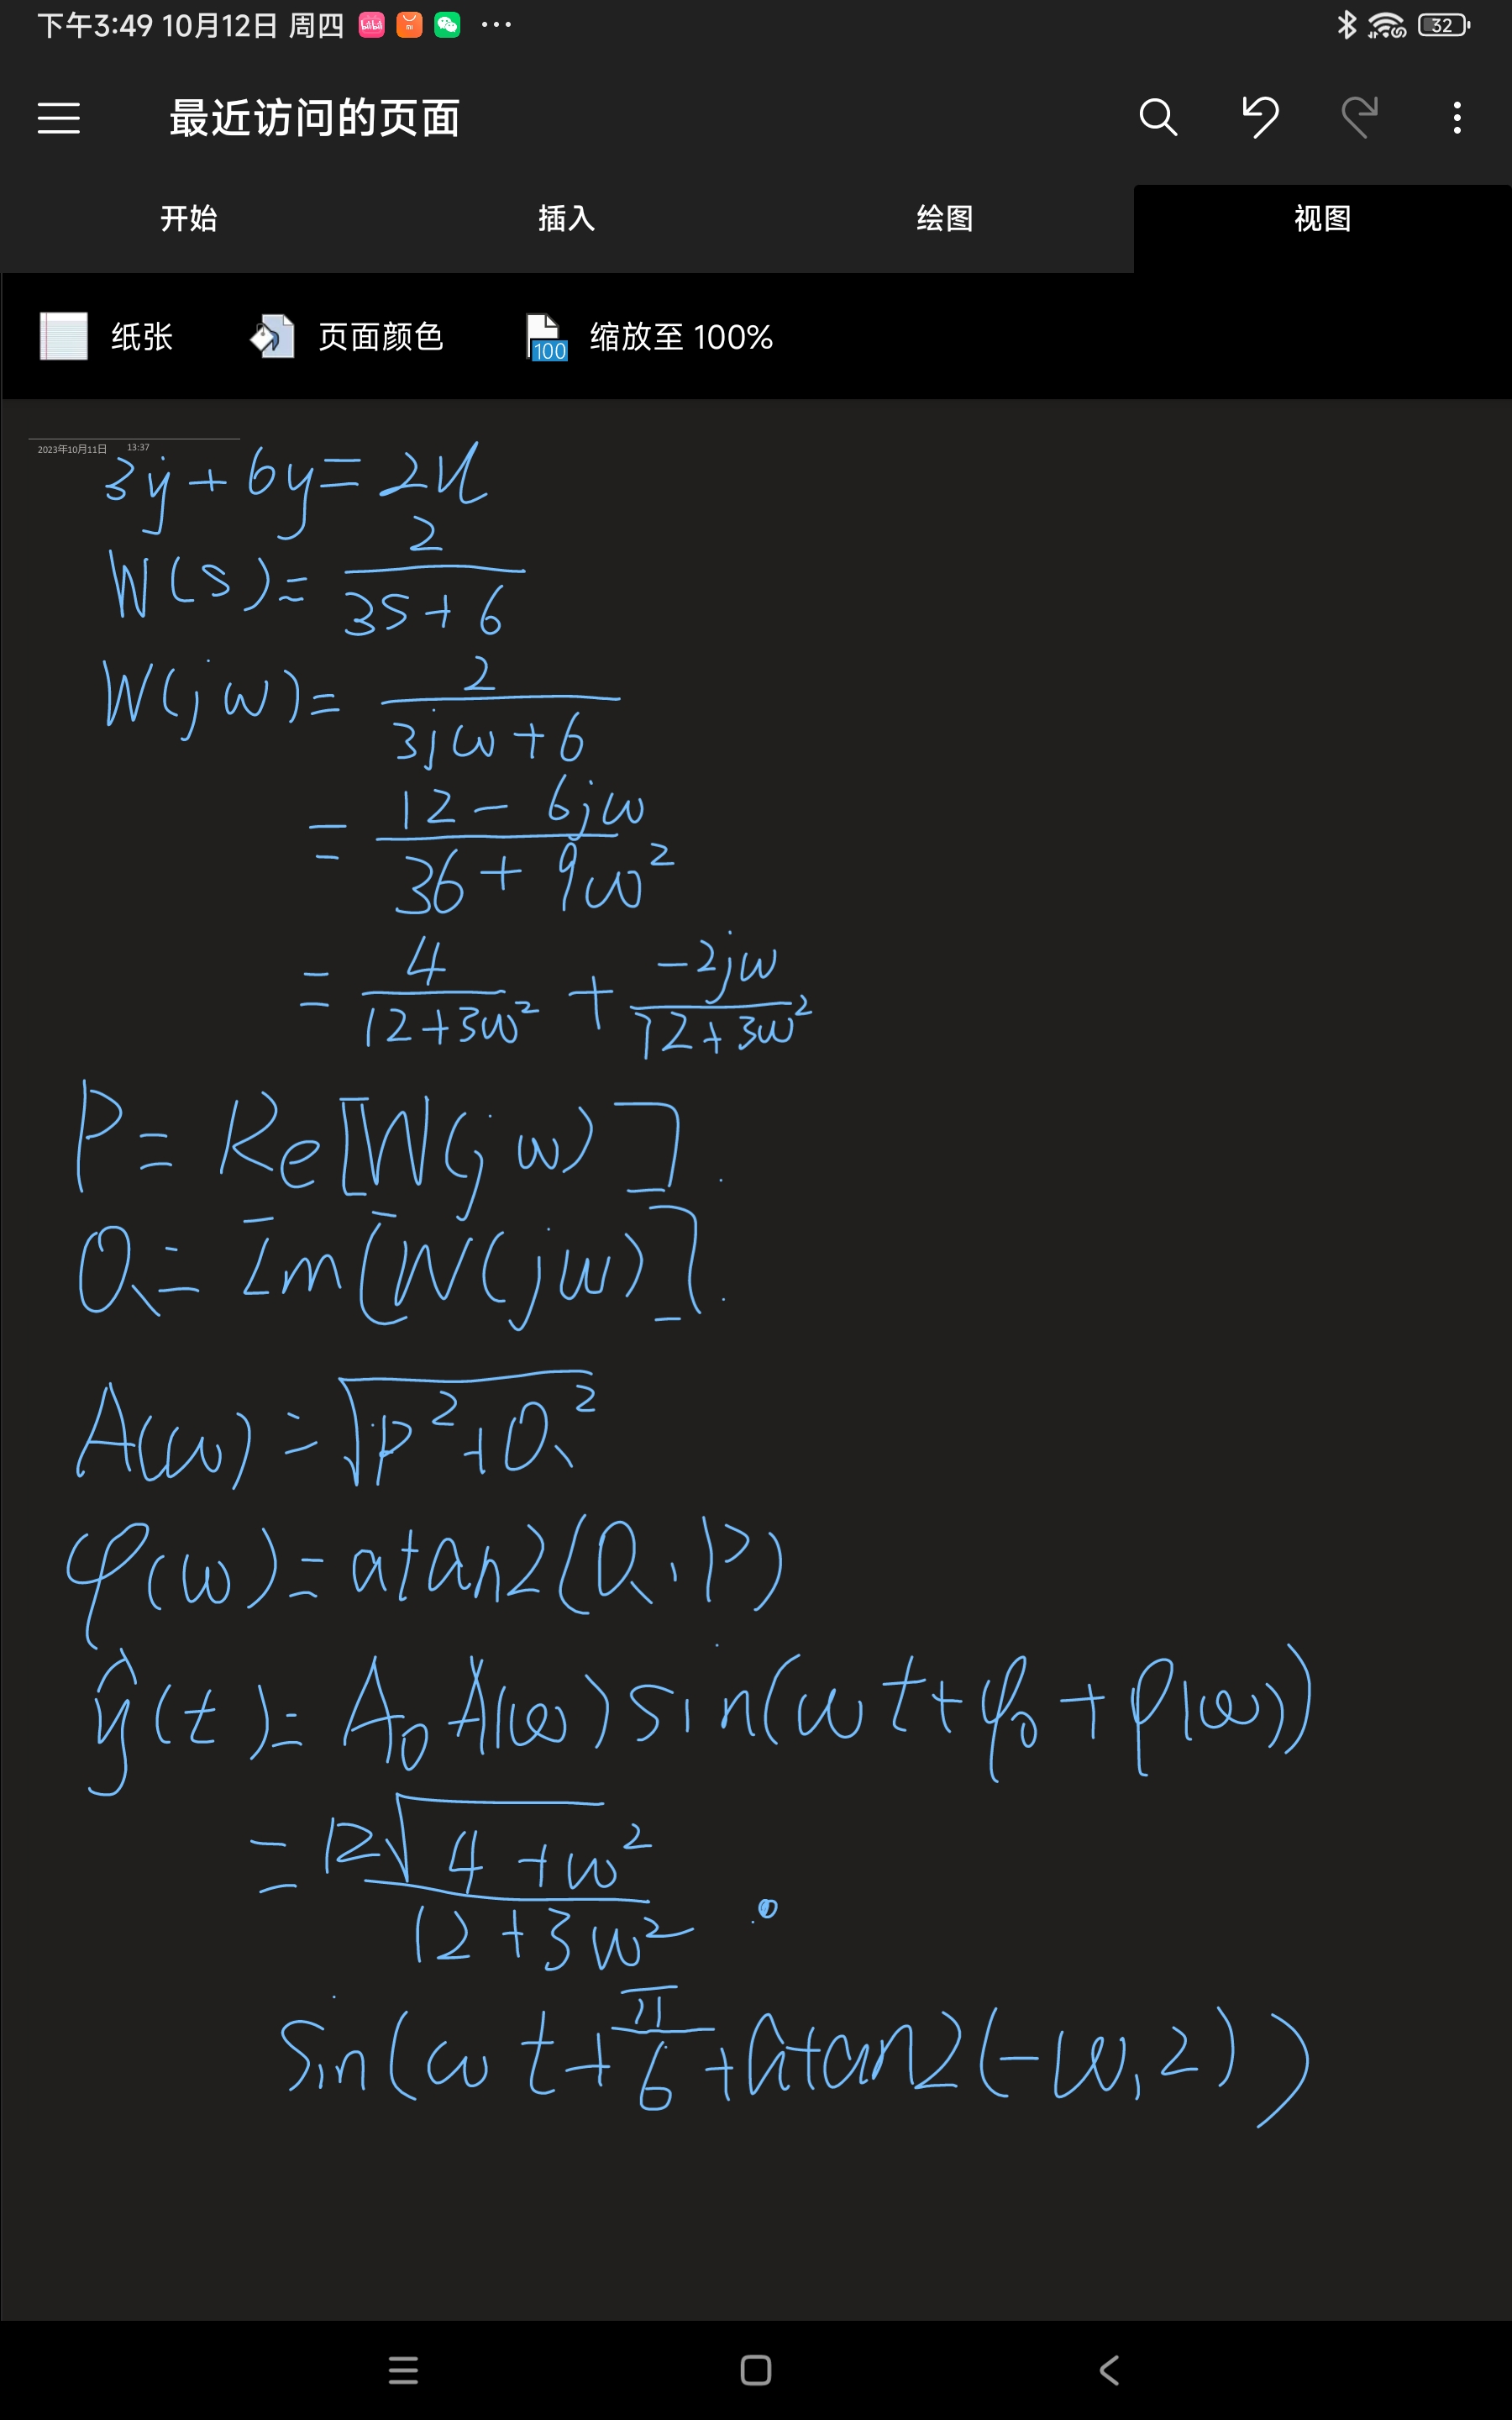 下午3:49 10月12日 周四 ··· 32
最近访问的页面
开始 插入 绘图 视图
纸张 页面颜色 100 缩放至 100%
2023年10月11日 13:37
3ẏ + 6y = 2u
W(s) = 2/(3s+6)
W(jω) = 2/(3jω+6)
= (12 - 6jω)/(36 + 9ω²)
= 4/(12+3ω²) + (-2jω)/(12+3ω²)
P = Re[W(jω)].
Q = Im[W(jω)].
A(ω) = √(P²+Q²)
φ(ω) = atan2(Q, P)
ŷ(t) = A₀A(ω)sin(ωt+φ₀+φ(ω))
= 12√(4+ω²)/(12+3ω²) ·
sin(ωt+π/6+atan2(-ω,2))